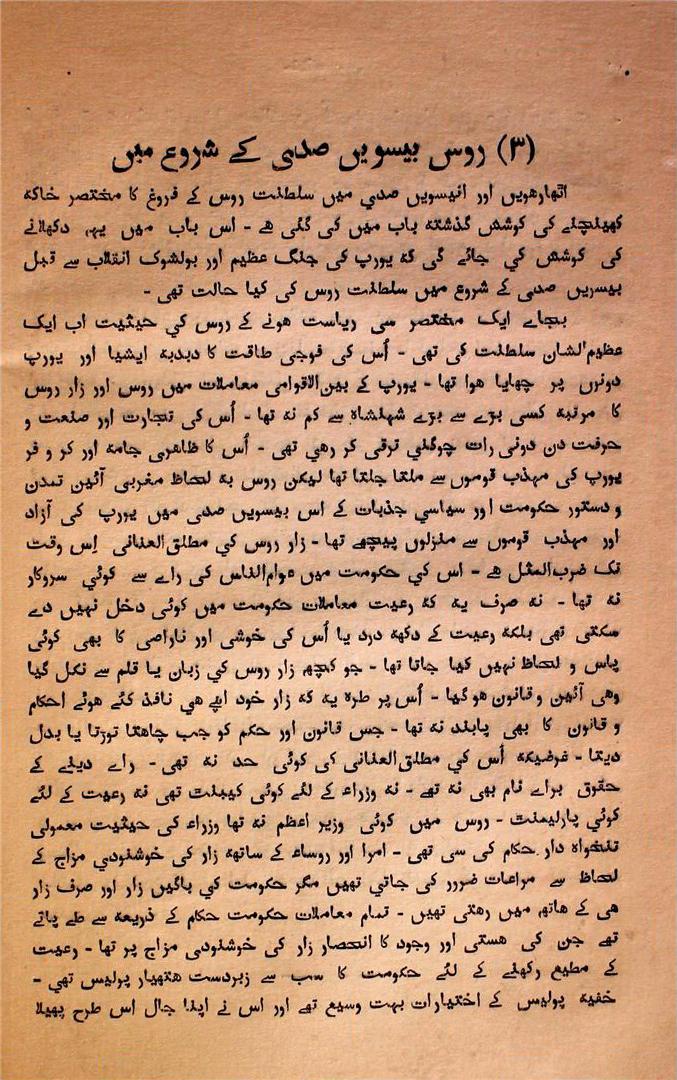 (۳) روس بیسویں صدی کے شروع میں
اٹھارھویں اور انیسویں صدی میں سلطنت روس کے فروغ کا مختصر خاکہ
کھینچنے کی کوشش گذشتہ باب میں کی گئی ھے - اس باب میں یہہ دکھلانے
کی کوشش کی جائے گی کہ یورپ کی جنگ عظیم اور بولشوک انقلاب سے قبل
بیسریں صدی کے شروع میں سلطنت روس کی کیا حالت تھی -
بجاے ایک مختصر سی ریاست ھونے کے روس کی حیثیت اب ایک
عظیم‌الشان سلطنت کی تھی - اُس کی فوجی طاقت کا دبدبہ ایشیا اور یورپ
دونوں پر چھایا ھوا تھا - یورپ کے بین‌الاقوامی معاملات میں روس اور زار روس
کا مرتبہ کسی بڑے سے بڑے شہنشاہ سے کم نہ تھا - اُس کی تجارت اور صنعت و
حرفت دن دونی رات چوگنی ترقی کر رھی تھی - اُس کا ظاھری جامہ اور کر و فر
یورپ کی مہذب قوموں سے ملتا جلتا تھا لیکن روس بہ لحاظ مغربی آئین تمدن
و دستور حکومت اور سیاسی جذبات کے اس بیسویں صدی میں یورپ کی آزاد
اور مہذب قوموں سے منزلوں پیچھے تھا - زار روس کی مطلق‌العنانی اِس وقت
تک ضرب‌المثل ھے - اس کی حکومت میں عوام‌الناس کی راے سے کوئی سروکار
نہ تھا - نہ صرف یہ کہ رعیت معاملات حکومت میں کوئی دخل نہیں دے
سکتی تھی بلکہ رعیت کے دکھہ درد یا اُس کی خوشی اور ناراضی کا بھی کوئی
پاس و لحاظ نہیں کیا جاتا تھا - جو کچھہ زار روس کی زبان یا قلم سے نکل گیا
وھی آئین و قانون ھو گیا - اُس پر طرہ یہ کہ زار خود اپنے ھی نافذ کئے ھوئے احکام
و قانون کا بھی پابند نہ تھا - جس قانون اور حکم کو جب چاھتا توڑتا یا بدل
دیتا - غرضیکہ اُس کی مطلق‌العنانی کی کوئی حد نہ تھی - راے دینے کے
حقوق براے نام بھی نہ تھے - نہ وزراء کے لئے کوئی کیبنٹ تھی نہ رعیت کے لئے
کوئی پارلیمنٹ - روس میں کوئی وزیر اعظم نہ تھا وزراء کی حیثیت معمولی
تنخواہ دار حکام کی سی تھی - امرا اور روساء کے ساتھہ زار کی خوشنودی مزاج کے
لحاظ سے مراعات ضرور کی جاتی تھیں مگر حکومت کی باگیں زار اور صرف زار
ھی کے ھاتھہ میں رھتی تھیں - تمام معاملات حکومت حکام کے ذریعہ سے طے پاتے
تھے جن کی ھستی اور وجود کا انحصار زار کی خوشنودی مزاج پر تھا - رعیت
کے مطیع رکھنے کے لئے حکومت کا سب سے زبردست ھتھیار پولیس تھی -
خفیہ پولیس کے اختیارات بہت وسیع تھے اور اس نے اپنا جال اس طرح پھیلا